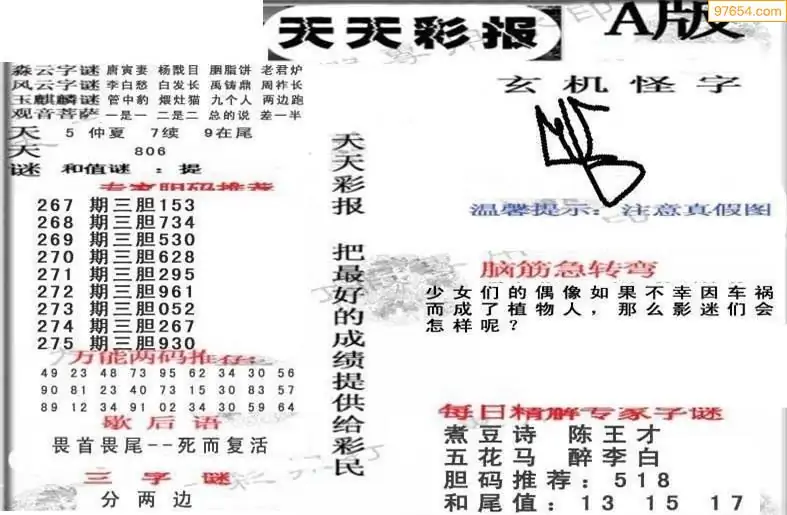 97654.com
天天彩报
A版
玄机怪字
淼云字谜 唐寅妻 杨戬目 胭脂饼 老君炉
风云字谜 李白愁 白发长 禹铸鼎 周祚长
玉麒麟谜 管中豹 煨灶猫 九个人 两边跑
观音菩萨 一是一 二是二 总的说 差一半
天 5 仲夏 7续 9在尾
天 806
谜 和值谜 :提
专家胆码推荐
267 期三胆153
268 期三胆734
269 期三胆530
270 期三胆628
271 期三胆295
272 期三胆961
273 期三胆052
274 期三胆267
275 期三胆930
万能两码推荐:
49 23 48 73 95 62 34 30 56
90 81 23 40 73 15 30 83 57
89 12 34 91 02 34 30 59 64
歇后语
畏首畏尾--死而复活
三字谜
分两边
天天彩报 把最好的成绩提供给彩民
温馨提示:注意真假图
脑筋急转弯
少女们的偶像如果不幸因车祸
而成了植物人,那么影迷们会
怎样呢?
每日精解专家字谜
煮豆诗 陈王才
五花马 醉李白
胆码推荐:518
和尾值:13 15 17